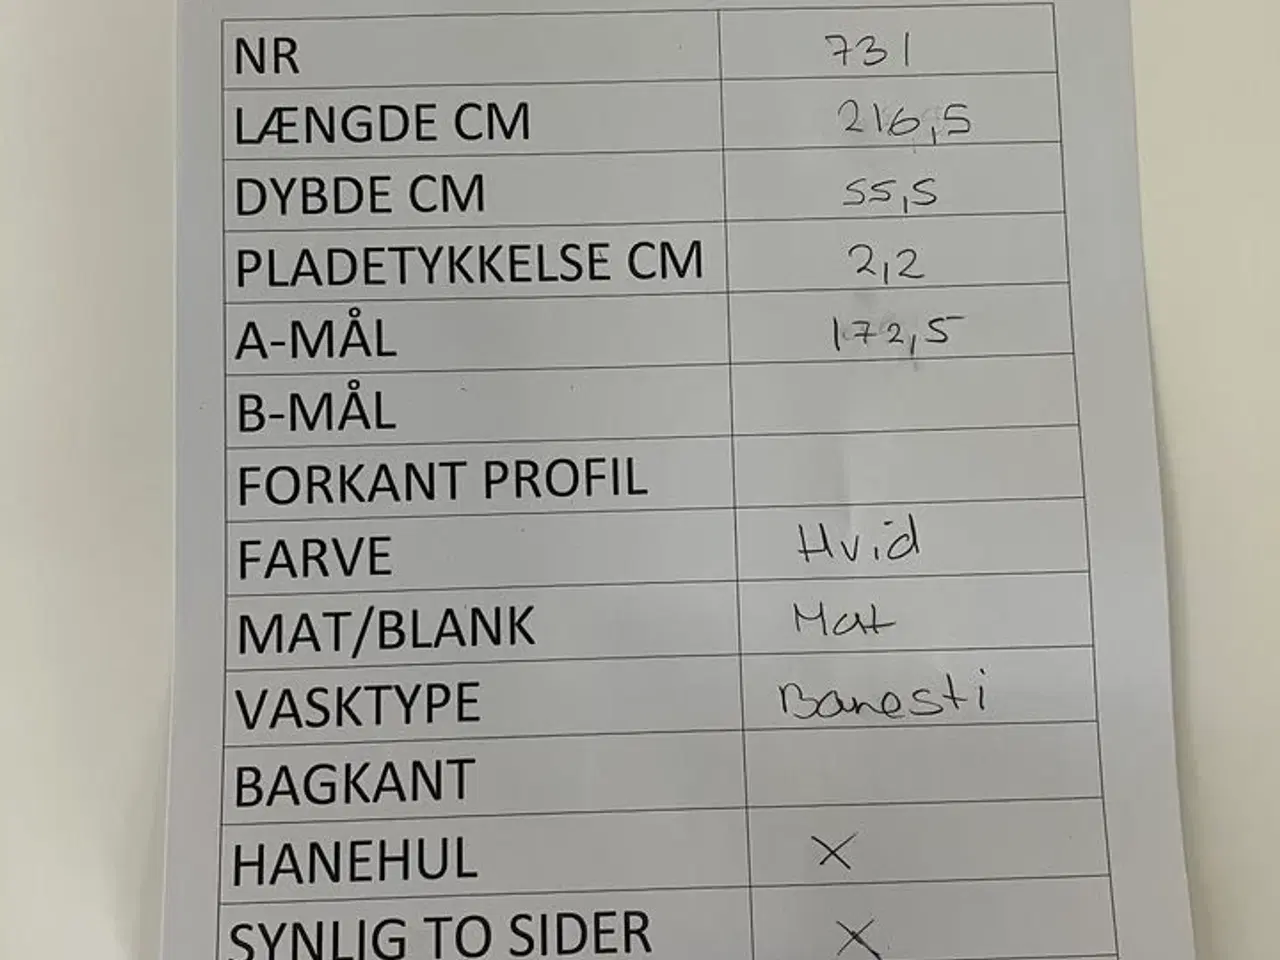 NR 731
LÆNGDE CM 216,5
DYBDE CM 55,5
PLADETYKKELSE CM 2,2
A-MÅL 172,5
B-MÅL
FORKANT PROFIL
FARVE Hvid
MAT/BLANK Mat
VASKTYPE Banesti
BAGKANT
HANEHUL X
SYNLIG TO SIDER X